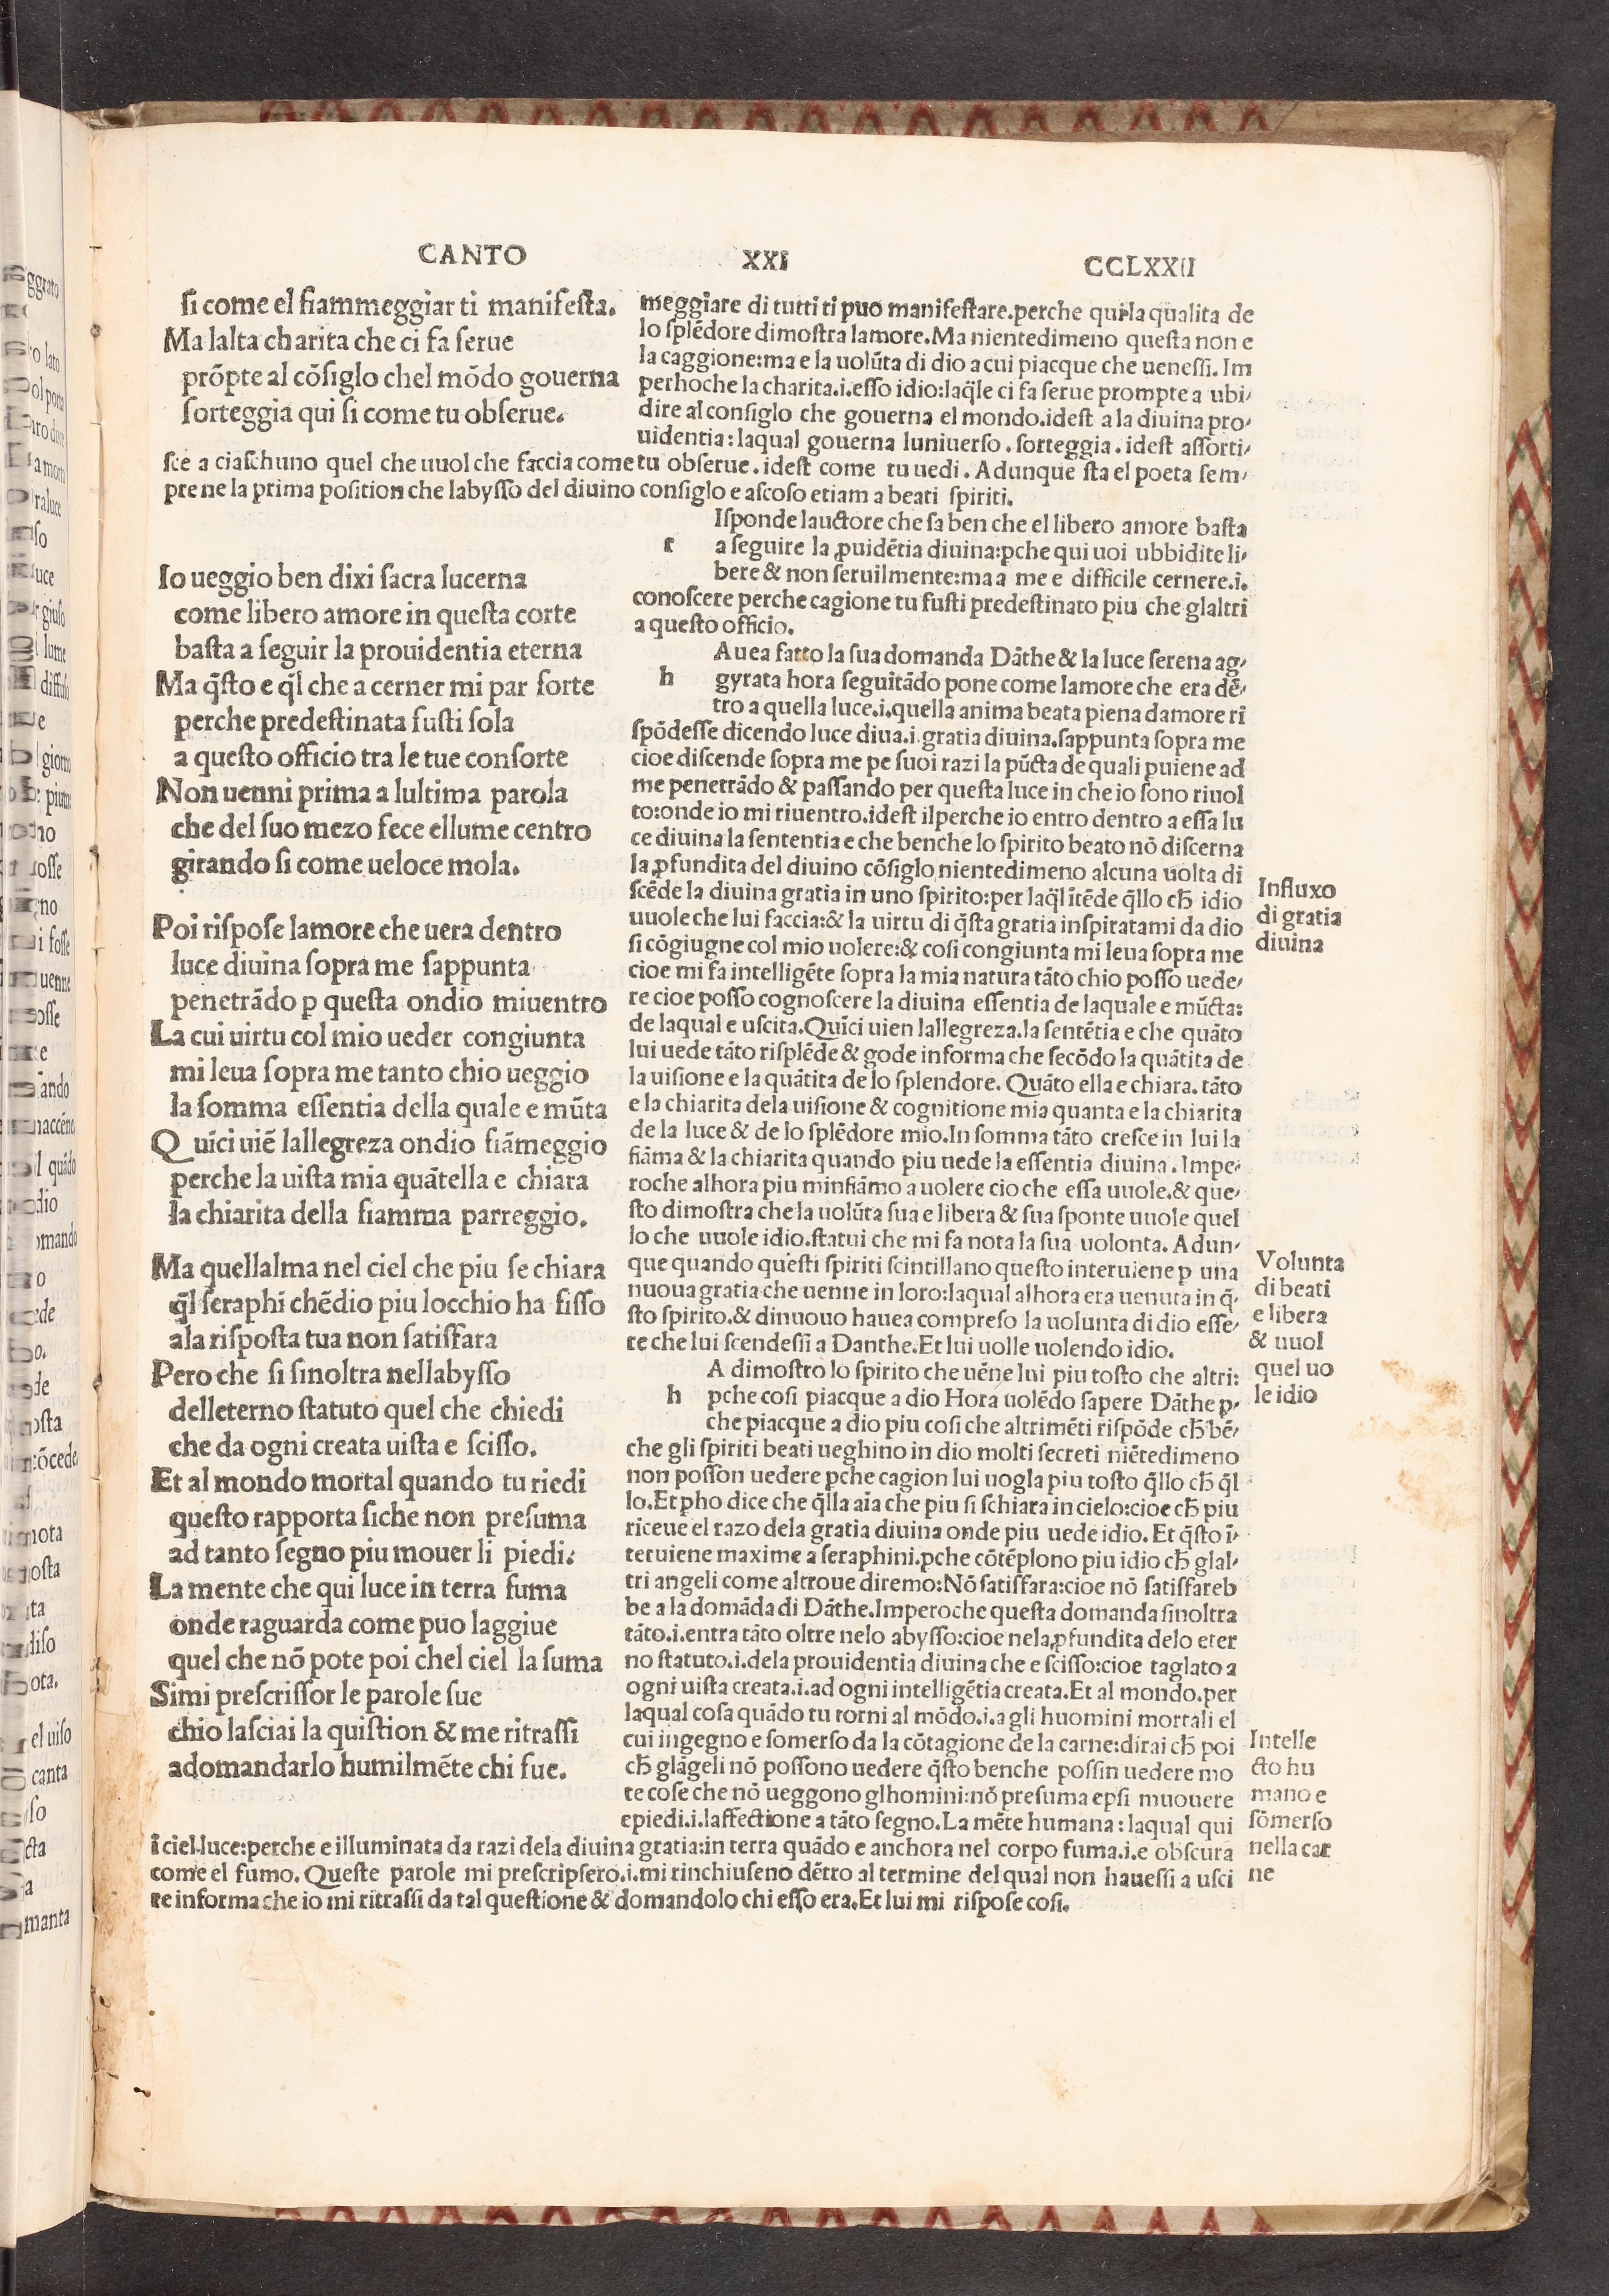 CANTO XXI CCLXXII
si come el fiammeggiar ti manifesta.
Ma lalta charita che ci fa serue
prōpte al cōsiglo chel mōdo gouerna
sorteggia qui si come tu obserue.
meggiare di tutti ti puo manifestare.perche qui la qualita de
lo splēdore dimostra lamore.Ma nientedimeno questa non e
la caggione:ma e la uolūta di dio a cui piacque che uenessi.Im
perhoche la charita.i.esso idio:laq̄le ci fa serue prompte a ubi/
dire al consiglo che gouerna el mondo.idest a la diuina pro/
uidentia:laqual gouerna luniuerso.sorteggia.idest assorti/
sce a ciaschuno quel che uuol che faccia come tu obserue.idest come tu uedi. Adunque sta el poeta sem/
pre ne la prima position che labysso del diuino consiglo e ascoso etiam a beati spiriti.
Io ueggio ben dixi sacra lucerna
come libero amore in questa corte
basta a seguir la prouidentia eterna
Ma q̄sto e q̄l che a cerner mi par forte
perche predestinata fusti sola
a questo officio tra le tue consorte
Non uenni prima a lultima parola
che del suo mezo fece ellume centro
girando si come ueloce mola.
Poi rispose lamore che uera dentro
luce diuina sopra me sappunta
penetrādo ꝑ questa ondio miuentro
La cui uirtu col mio ueder congiunta
mi leua sopra me tanto chio ueggio
la somma essentia della quale e mūta
Quīci uiē lallegreza ondio fiāmeggio
perche la uista mia quātella e chiara
la chiarita della fiamma parreggio.
Ma quellalma nel ciel che piu se chiara
q̄l seraphī chēdio piu locchio ha fisso
ala risposta tua non satisfara
Pero che si sinoltra nellabysso
delleterno statuto quel che chiedi
che da ogni creata uista e scisso.
Et al mondo mortal quando tu riedi
questo rapporta siche non presuma
ad tanto segno piu mouer li piedi.
La mente che qui luce in terra fuma
onde raguarda come puo laggiue
quel che nō pote poi chel ciel la suma
Simi prescrissor le parole sue
chio lasciai la quistion & me ritrassi
adomandarlo humilmēte chi fue.
Isponde lauctore che sa ben che el libero amore basta
r a seguire la ꝓuidētia diuina:ꝑche qui uoi ubbidite li/
bere & non seruilmente:ma a me e difficile cernere.i.
conoscere perche cagione tu fusti predestinato piu che glaltri
a questo officio.
Auea fatto la sua domanda Dāthe & la luce serena ag/
h gyrata hora seguitādo pone come lamore che era dē/
tro a quella luce.i.quella anima beata piena damore rī
spōdesse dicendo luce diua.i.gratia diuina.sappunta sopra me
cioe discende sopra me pe suoi razi la pūcta de quali puiene ad
me penetrādo & passando per questa luce in che io sono riuol
to:onde io mi riuentro.idest ilperche io entro dentro a essa lu
ce diuina la sententia e che benche lo spirito beato nō discerna
la ꝓfundita del diuino cōsiglo nientedimeno alcuna uolta di
scēde la diuina gratia in uno spirito:per laq̄l ītēde q̄llo ch̄ idio
uuole che lui faccia:& la uirtu di q̄sta gratia inspiratami da dio
si cōgiugne col mio uolere:& cosi congiunta mi leua sopra me
cioe mi fa intelligēte sopra la mia natura tāto chio posso uede/
re cioe posso cognoscere la diuina essentia de laquale e mūcta:
de laqual e uscita.Quīci uien lallegreza.la sentētia e che quāto
lui uede tāto risplēde & gode informa che secōdo la quātita de
la uisione e la quātita de lo splendore. Quāto ella e chiara. tāto
e la chiarita dela uisione & cognitione mia quanta e la chiarita
de la luce & de lo splēdore mio.In somma tāto cresce in lui la
fiāma & la chiarita quando piu uede la essentia diuina. Impe/
roche alhora piu minfiāmo a uolere cio che essa uuole.& que/
sto dimostra che la uolūta sua e libera & sua sponte uuole quel
lo che uuole idio.statui che mi fa nota la sua uolonta. Adun/
que quando questi spiriti scintillano questo interuiene ꝑ una
nuoua gratia che uenne in loro:laqual alhora era uenuta in q̄/
sto spirito.& dinuouo hauea compreso la uolunta di dio esse/
te che lui scendessi a Danthe.Et lui uolle uolendo idio.
A dimostro lo spirito che uēne lui piu tosto che altri:
h ꝑche cosi piacque a dio Hora uolēdo sapere Dāthe ꝑ/
che piacque a dio piu cosi che altrimēti rispōde ch̄ bē/
che gli spiriti beati ueghino in dio molti secreti niētedimeno
non posson uedere ꝑche cagion lui uogla piu tosto q̄llo ch̄ q̄l
lo.Et ꝑho dice che q̄lla aīa che piu si schiara in cielo:cioe ch̄ piu
riceue el razo dela gratia diuina onde piu uede idio. Et q̄sto ī/
teruiene maxime a seraphini.ꝑche cōtēplono piu idio ch̄ glal/
tri angeli come altroue diremo:Nō satisfara:cioe nō satisfareb
be a la domāda di Dāthe.Imperoche questa domanda sinoltra
tāto.i.entra tāto oltre nelo abysso:cioe nela ꝓfundita delo eter
no statuto.i.dela prouidentia diuina che e scisso:cioe taglato a
ogni uista creata.i.ad ogni intelligētia creata.Et al mondo.per
laqual cosa quādo tu torni al mōdo.i.a gli huomini mortali el
cui ingegno e somerso da la cōtagione de la carne:dirai ch̄ poi
ch̄ glāgeli nō possono uedere q̄sto benche possin uedere mo
te cose che nō ueggono glhomini:nō presuma epsi muouere
epiedi.i.laffectione a tāto segno.La mēte humana:laqual qui
ī ciel.luce:perche e illuminata da razi dela diuina gratia:in terra quādo e anchora nel corpo fuma.i.e obscura
come el fumo. Queste parole mi prescripsero.i.mi rinchiuseno dētro al termine del qual non hauessi a usci
re informa che io mi ritrassi da tal questione & domandolo chi esso era.Et lui mi rispose cosi.
Influxo
di gratia
diuina
Volunta
di beati
e libera
& uuol
quel uo
le idio
Intelle
cto hu
mano e
sōmerso
nella car
ne